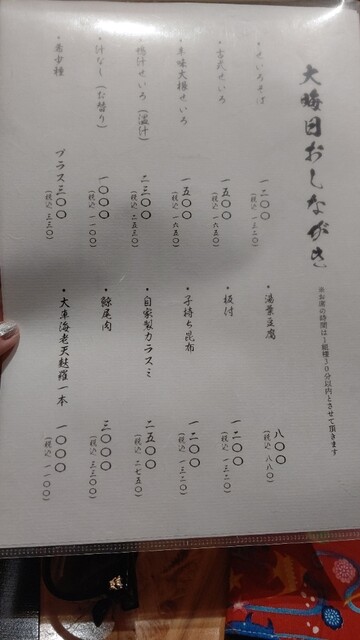 大晦日おしながき
※お席の時間は1組様30分以内とさせて頂きます
・せいろそば 一二〇〇
(税込 一三二〇)
・古式せいろ 一五〇〇
(税込 一六五〇)
・辛味大根せいろ 一五〇〇
(税込 一六五〇)
・鴨汁せいろ(温汁) 二三〇〇
(税込 二五三〇)
・汁なし(お替り) 一〇〇〇
(税込 一一〇〇)
・希少種 プラス三〇〇
(税込 三三〇)
・湯葉豆腐 八〇〇
(税込 八八〇)
・板付 一二〇〇
(税込 一三二〇)
・子持ち昆布 一二〇〇
(税込 一三二〇)
・自家製カラスミ 二五〇〇
(税込 二七五〇)
・鯨尾肉 三〇〇〇
(税込 三三〇〇)
・大車海老天麩羅一本 一〇〇〇
(税込 一一〇〇)